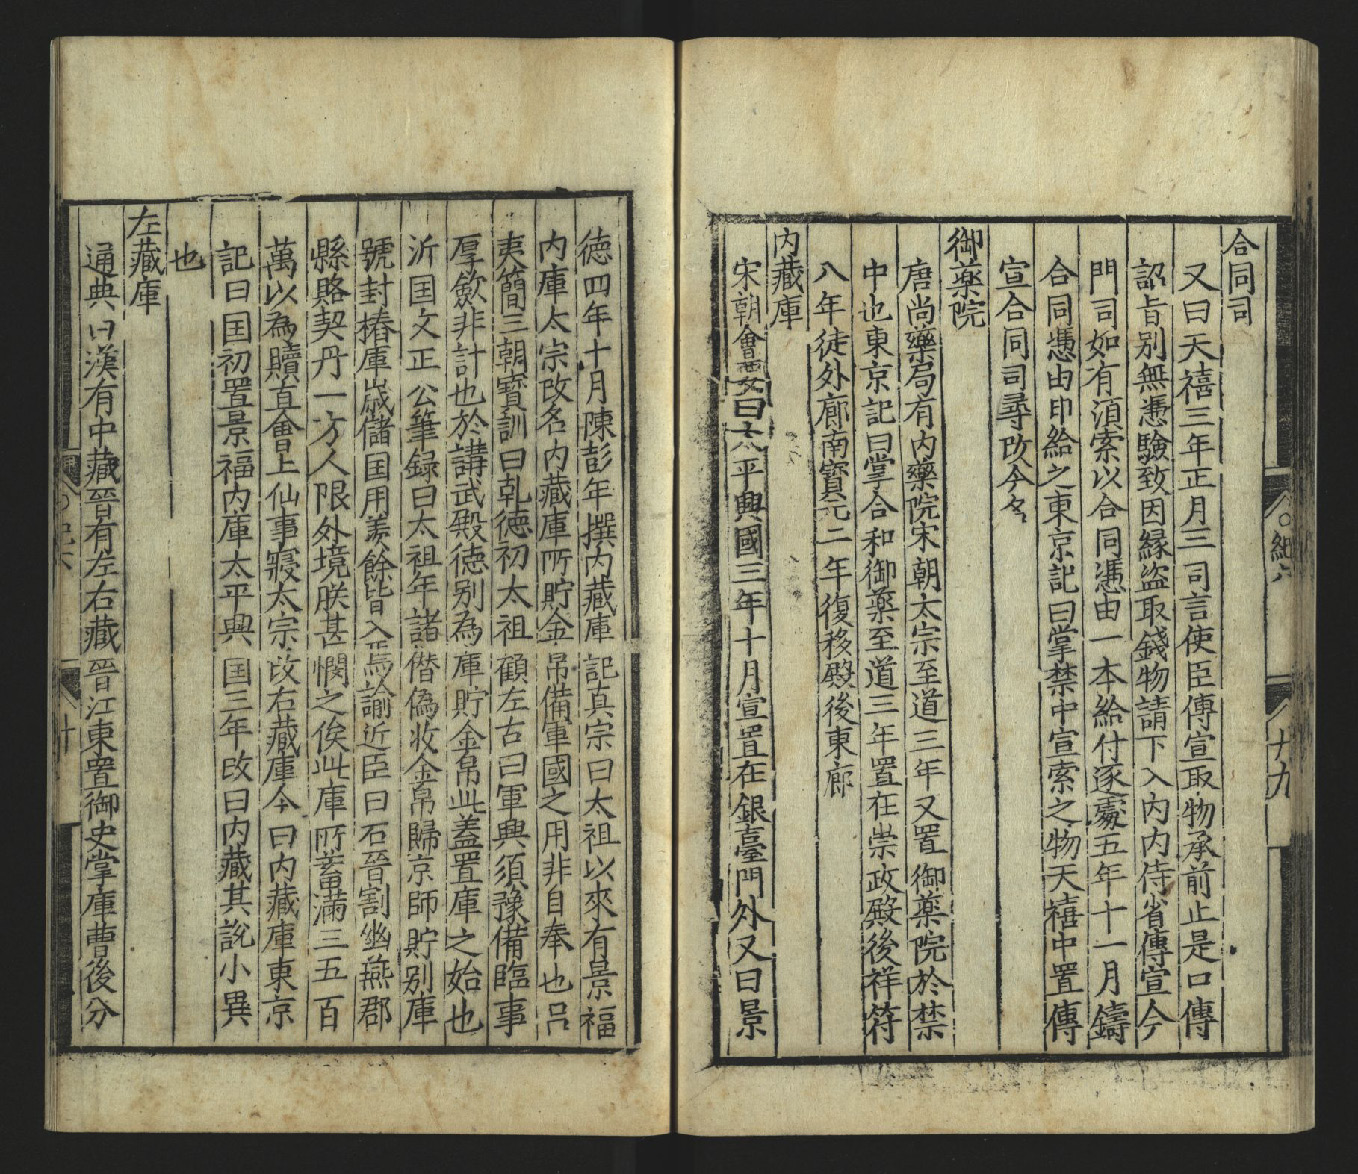 合同司
又曰天禧三年正月三司言使臣傳宣取物承前止是口傳
詔旨別無憑驗致因緣盜取錢物請下入内内侍省傳宣今
門司如有湏索以合同憑由一本給付逐處五年十一月鑄
合同憑由印給之東京記曰掌禁中宣索之物天禧中置傳
宣合同司尋改今名
御藥院
唐尚藥局有内藥院宋朝太宗至道三年又置御藥院於禁
中也東京記曰掌合和御藥至道三年置在崇政殿後祥符
八年徒外廊南寳元二年復移殿後東廊
内藏庫
宋朝會要曰太平興國三年十月宣置在銀臺門外又曰景
徳四年十月陳彭年撰内藏庫記真宗曰太祖以來有景福
内庫太宗改名内藏庫所貯金帛備軍國之用非自奉也吕
夷簡三朝寳訓曰乹徳初太祖顧左右曰軍興須豫備臨事
厚斂非計也於講武殿徳别為庫貯金帛此盖置庫之始也
沂国文正公筆録曰太祖年諸僣偽收金帛歸京師貯别庫
號封樁庫歳儲国用羡餘皆入焉諭近臣曰石晉割幽燕郡
縣賂契丹一方人限外境朕甚憫之俟此庫所蓄滿三五百
萬以為贖直會上仙事寢太宗改右藏庫今曰内藏庫東京
記曰国初置景福内庫太平興国三年改曰内藏其說小異
也
左藏庫
通典曰漢有中藏晉有左右藏晉江東置御史掌庫曹後分
紀六
十九